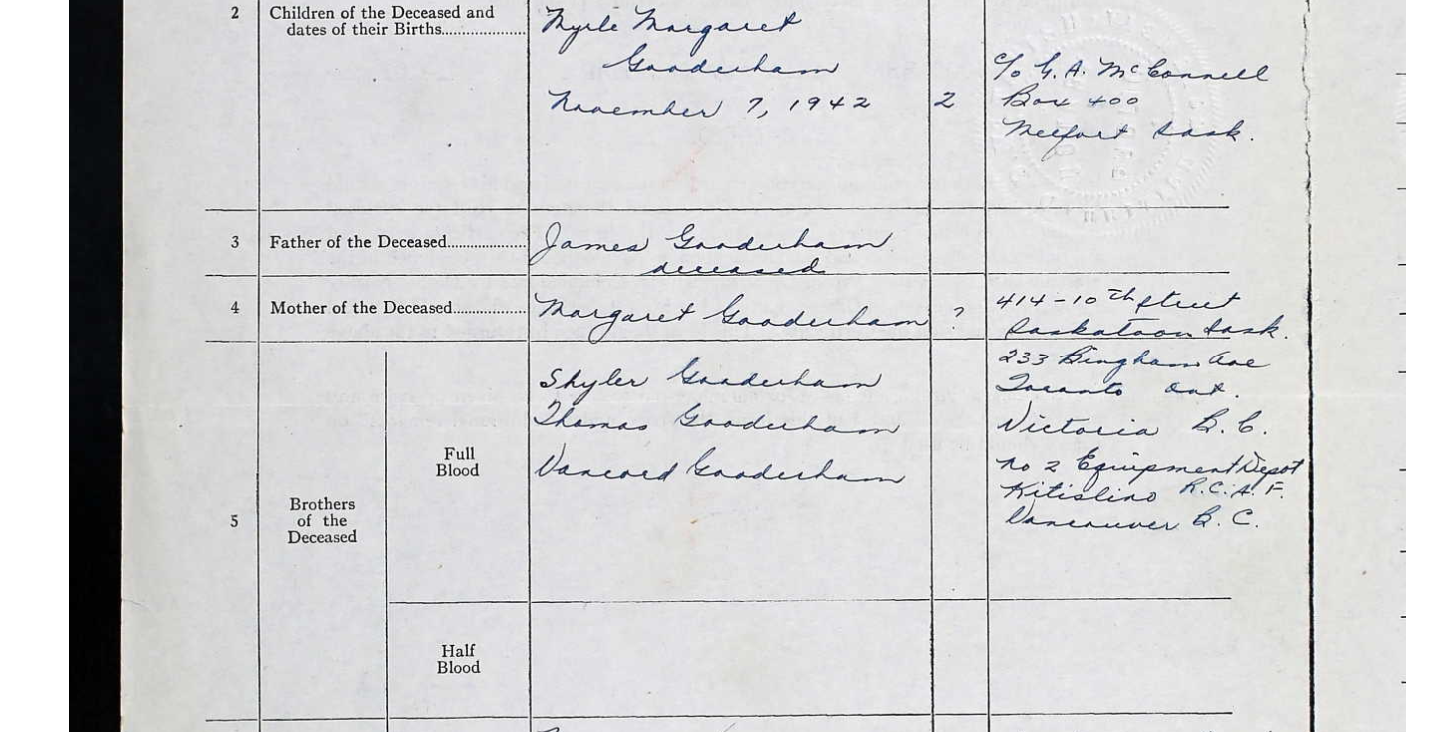 2 Children of the Deceased and
dates of their Births....................
Myrle Margaret
Gooderham
November 7, 1942 2
c/o G. A. McConnell
Box 400
Melfort Sask.
3 Father of the Deceased.................
James Gooderham
deceased
4 Mother of the Deceased................
Margaret Gooderham ?
414-10th street
Saskatoon Sask.
5 Brothers
of the
Deceased
Full
Blood
Shyler Gooderham
233 Bingham Ave
Toronto Ont.
Thomas Gooderham
Victoria B.C.
Gooderham
No 2 Equipment Depot
Kitislino R.C.A.F.
Vancouver B.C.
Half
Blood